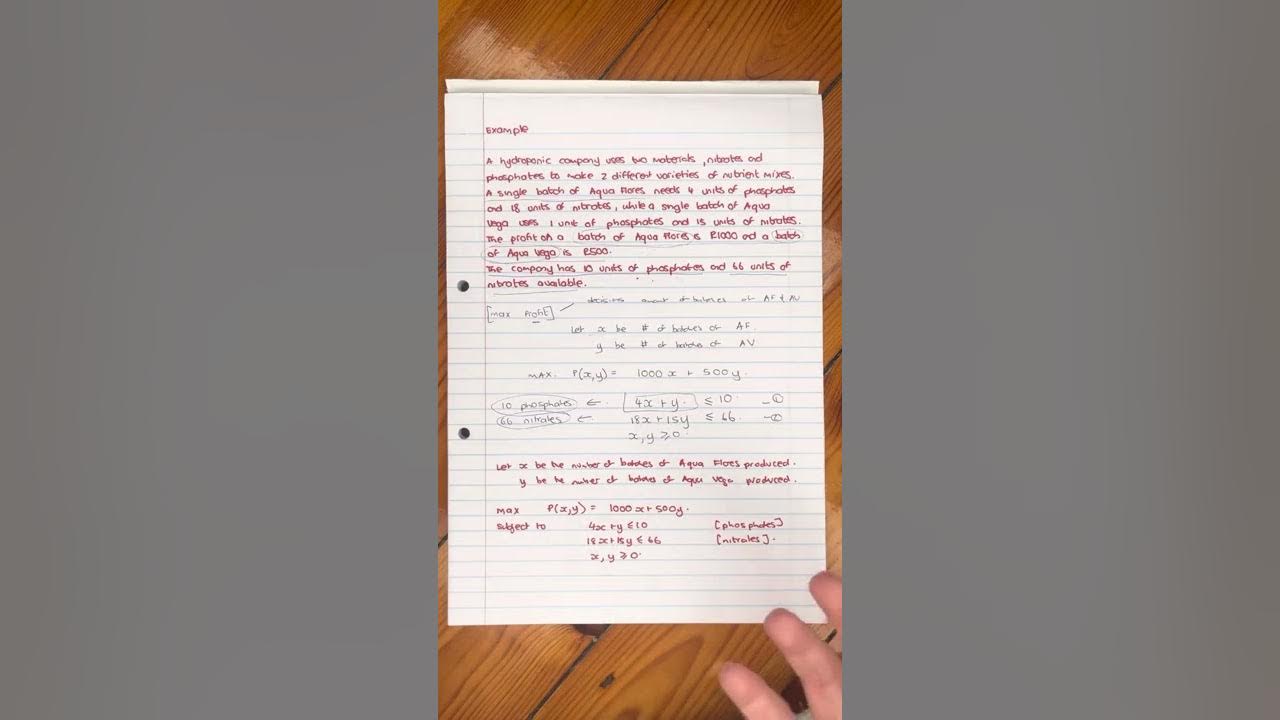 Example
A hydroponic company uses two materials, nitrates and
phosphates to make 2 different varieties of nutrient mixes.
A single batch of Aqua Flores needs 4 units of phosphates
and 18 units of nitrates, while a single batch of Aqua
Vega uses 1 unit of phosphates and 15 units of nitrates.
The profit on a batch of Aqua Flores is R1000 and a batch
of Aqua Vega is R500.
The company has 10 units of phosphates and 66 units of
nitrates available.
decisions amount of batches of AF & AV
[max Profit]
Let x be # of batches of AF.
y be # of batches of AV
MAX. P(x,y) = 1000x + 500y.
10 phosphates ← 4x+y. ≤ 10. —①
66 nitrates ← 18x+15y ≤ 66. —②
x,y ≥0.
Let x be the number of batches of Aqua Flores produced.
y be the number of batches of Aqua Vega produced.
max P(x,y) = 1000x+500y.
Subject to 4x+y ≤10 [phosphates]
18x+15y ≤ 66 [nitrates].
x,y ≥0.